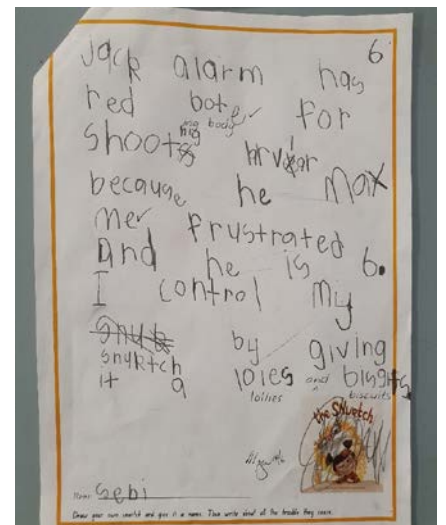 6
Jack alarm has
red bote for
my body
shoots
because he max
mer frustrated
And he is 6.
I control miy
snyktch by giving
it a lolies and bisgits
lollies biscuits
the Snuetch
Name Sebi
Draw your own snortch and give it a name. Then write about all the trouble they cause.